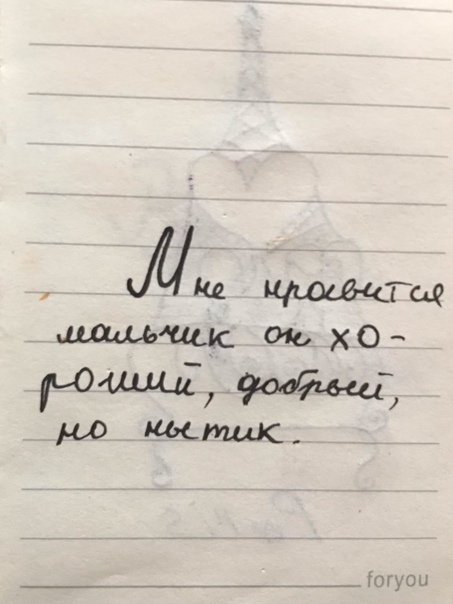 Мне нравится
мальчик он хо-
роший, добрый,
но нытик.
foryou